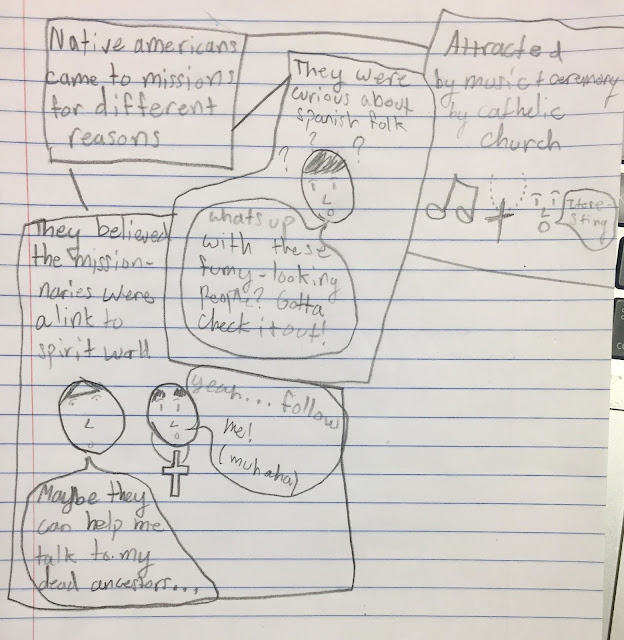 Native americans
came to missions
for different
reasons
They were
curious about
spanish folk
? ? ?
whats up
with these
funny-looking
people? Gotta
check it out!
Attracted
by music + ceremony
by catholic
church
Intere-
sting
They believed
the mission-
naries were
a link to
spirit world
yeah... follow
me!
(muhaha)
Maybe they
can help me
talk to my
dead ancestors...